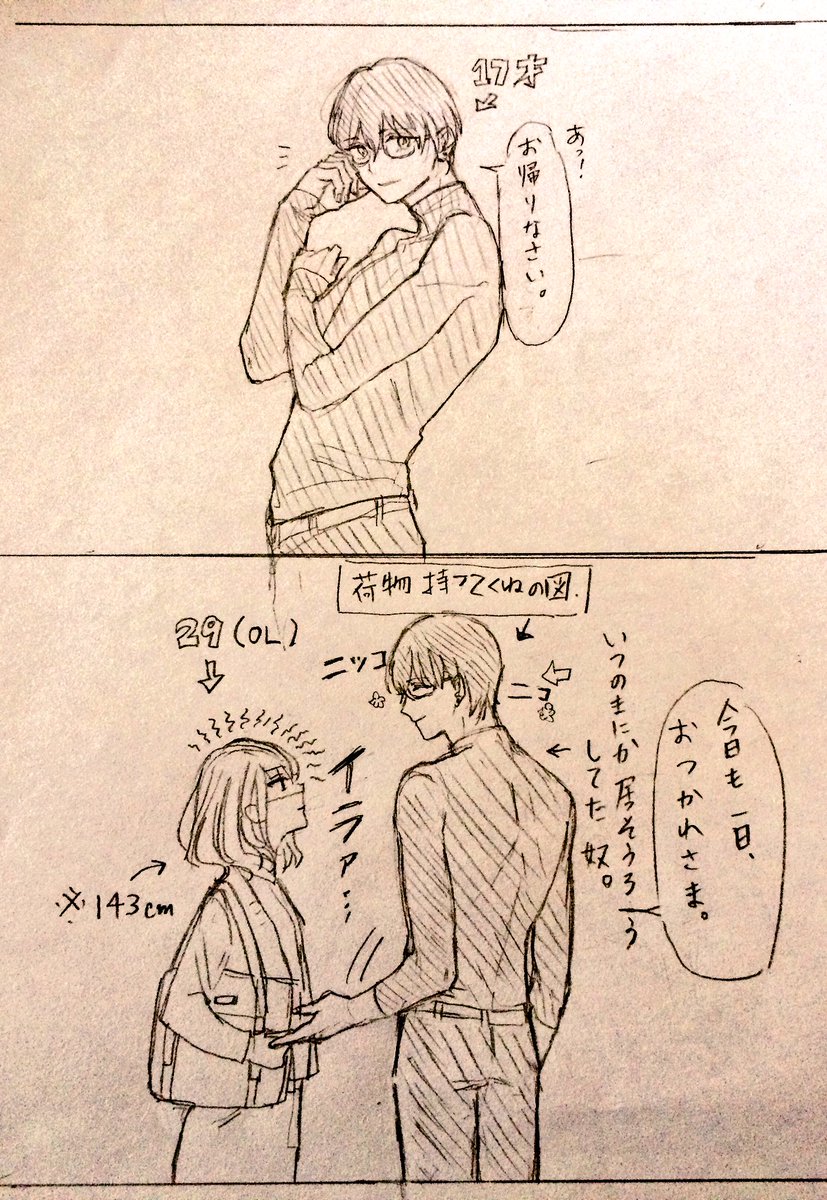 17才
あっ!
お帰りなさい。
荷物持ってくねの図.
29(OL)
ニッコ
ニコ
いつのまにか居そうろう
してた奴。
今日も一日、
おつかれさま。
イラァ…
※143cm